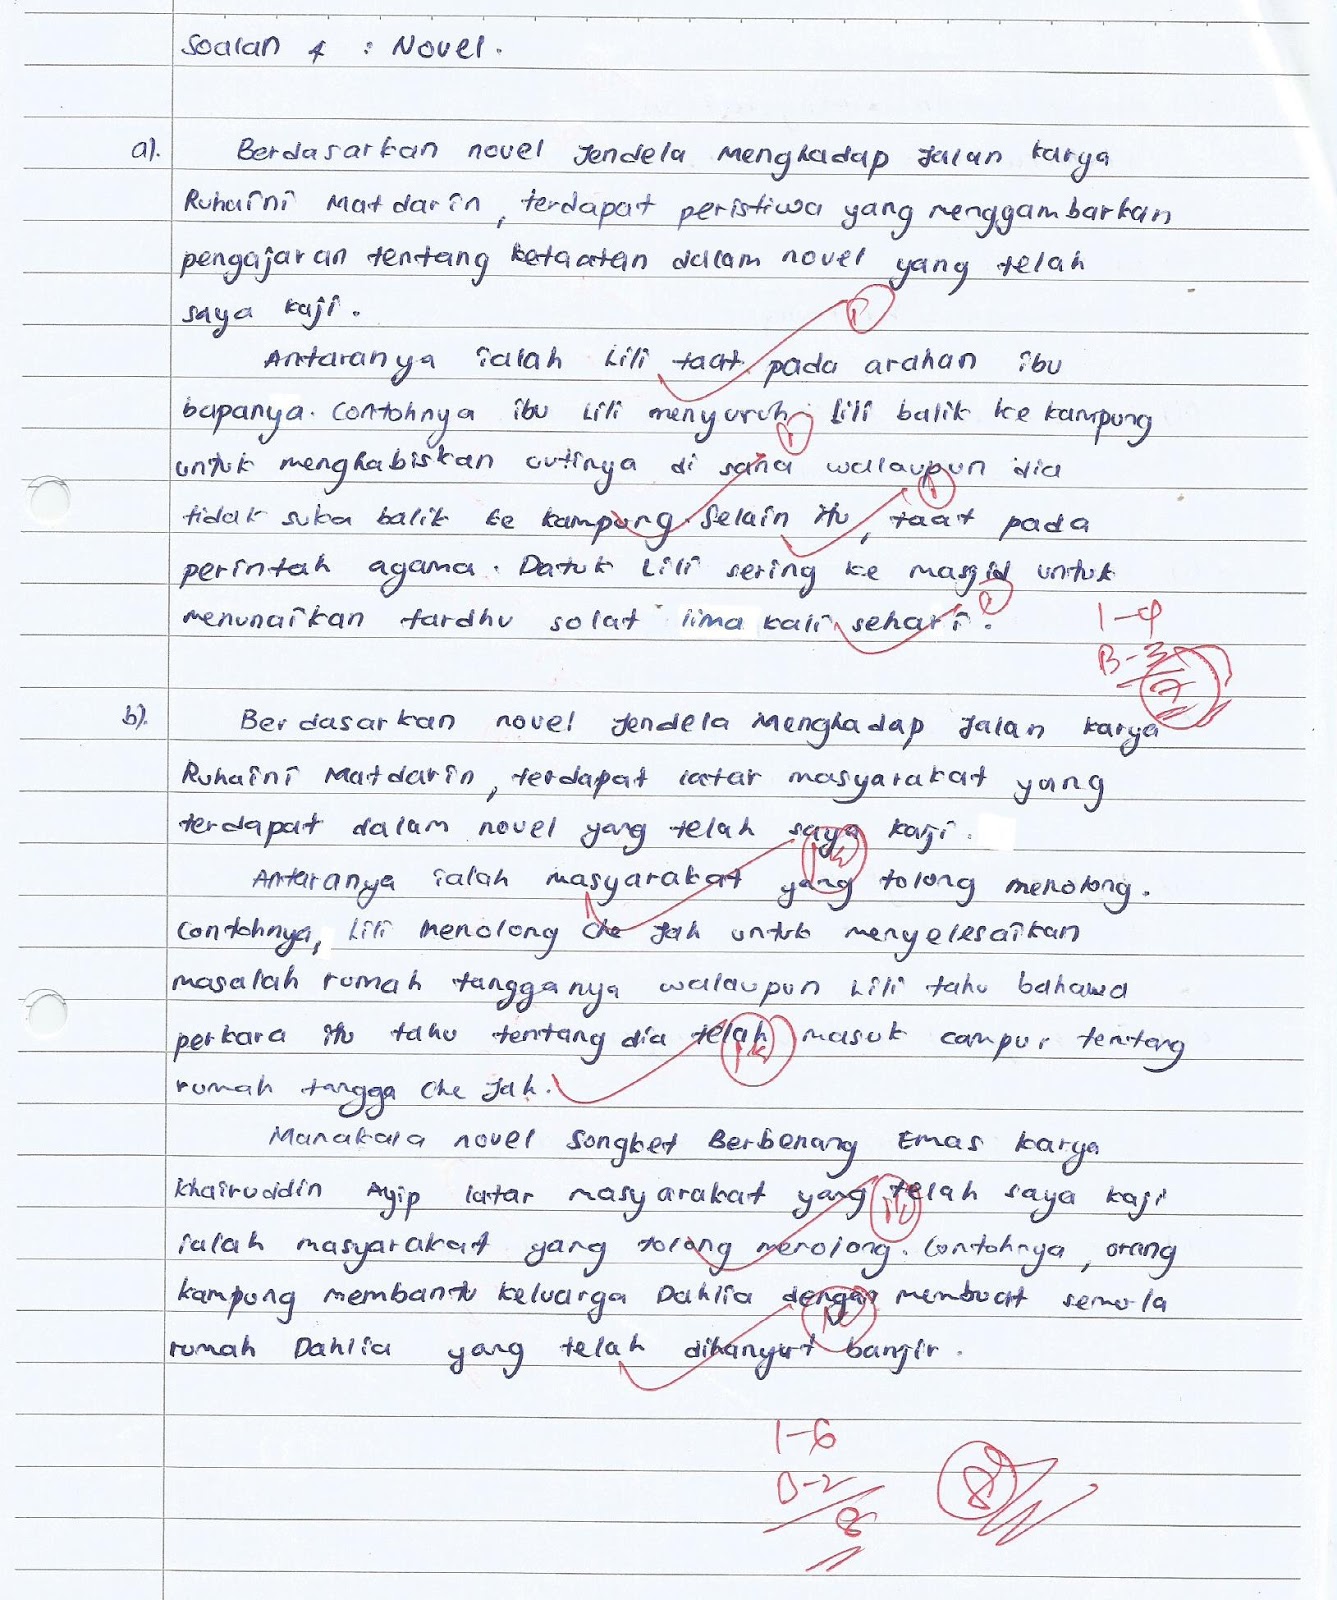 Soalan 4 : Novel.
a). Berdasarkan novel Jendela Menghadap Jalan karya
Ruhaini Matdarin, terdapat peristiwa yang menggambarkan
pengajaran tentang ketaatan dalam novel yang telah
saya kaji.
Antaranya ialah Lili taat pada arahan ibu
bapanya. Contohnya ibu Lili menyuruh Lili balik ke kampung
untuk menghabiskan cutinya di sana walaupun dia
tidak suka balik ke kampung. Selain itu, taat pada
perintah agama. Datuk Lili sering ke masjid untuk
menunaikan fardhu solat lima kali sehari.
1-4
B-3
7
b). Berdasarkan novel Jendela Menghadap Jalan karya
Ruhaini Matdarin, terdapat latar masyarakat yang
terdapat dalam novel yang telah saya kaji.
Antaranya ialah masyarakat yang tolong menolong.
Contohnya, Lili menolong Che Jah untuk menyelesaikan
masalah rumah tangganya walaupun Lili tahu bahawa
perkara itu tahu tentang dia telah masuk campur tentang
rumah tangga Che Jah.
Manakala novel Songket Berbenang Emas karya
Khairuddin Ayip latar masyarakat yang telah saya kaji
ialah masyarakat yang tolong menolong. Contohnya, orang
kampung membantu keluarga Dahlia dengan membuat semula
rumah Dahlia yang telah dihanyut banjir.
1-6
B-2
8